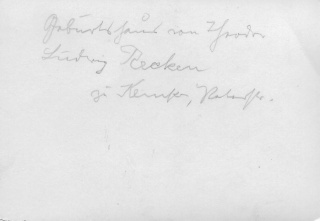 Geburtshaus von Theodor
Ludwig Reoken
zu Kempen,